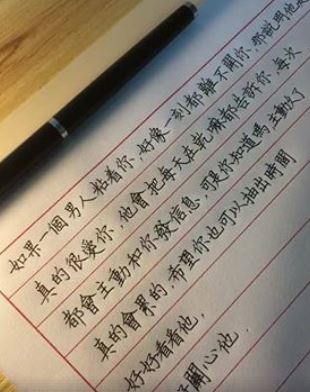 如果一個男人粘着你,好像一刻都離不開你,那說明他是
真的很愛你,他會把每天在乾嘛都告訴你,每次
都會主動和你發信息,可是你知道嗎,主動久了
真的會累的,希望你也可以抽出時間
好好看看他,
關心他.